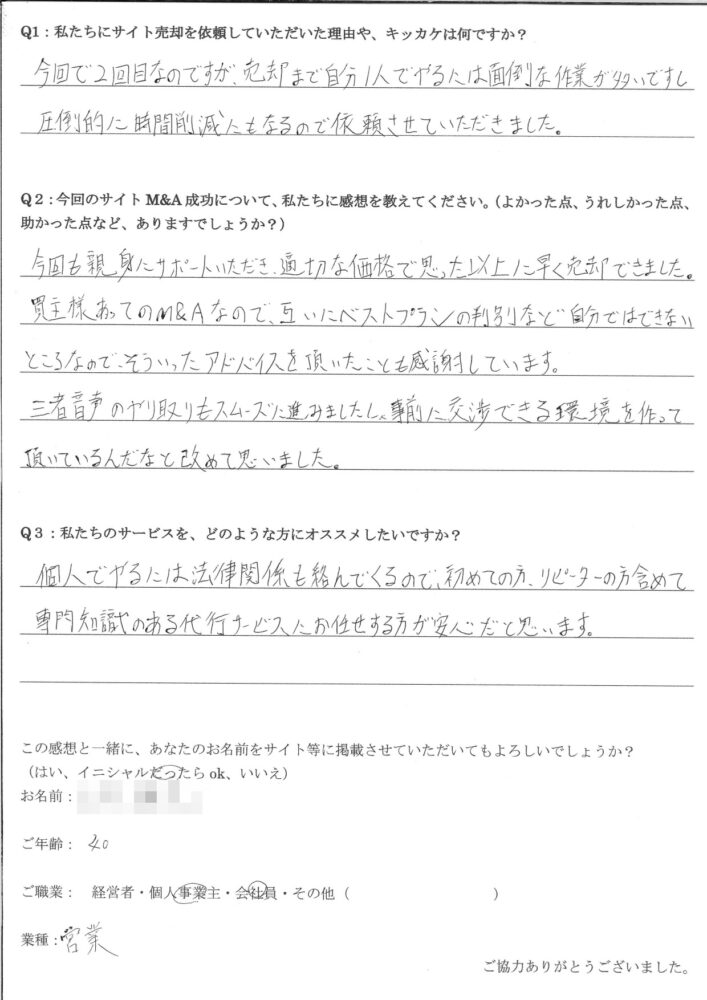 Q1：私たちにサイト売却を依頼していただいた理由や、キッカケは何ですか？
今回で2回目なのですが、売却まで自分1人でやるには面倒な作業が多いですし
圧倒的に時間削減にもなるので依頼させていただきました。
Q２：今回のサイト M&A 成功について、私たちに感想を教えてください。（よかった点、うれしかった点、
助かった点など、ありますでしょうか？）
今回も親身にサポートいただき、適切な価格で思った以上に早く売却できました。
買主様あってのM&Aなので、互いにベストプランの判別など自分ではできない
ところなので、そういったアドバイスを頂いたことも感謝しています。
三者音声のやり取りもスムーズに進みましたし、事前に交渉できる環境を作って
頂いているんだなと改めて思いました。
Q３：私たちのサービスを、どのような方にオススメしたいですか？
個人でやるには法律関係も絡んでくるので、初めての方、リピーターの方含めて
専門知識のある代行サービスにお任せする方が安心だと思います。
この感想と一緒に、あなたのお名前をサイト等に掲載させていただいてもよろしいでしょうか？
（はい、イニシャルだったら ok、いいえ）
お名前：
ご年齢： 40
ご職業： 経営者・個人事業主・会社員・その他（ ）
業種：営業
ご協力ありがとうございました。